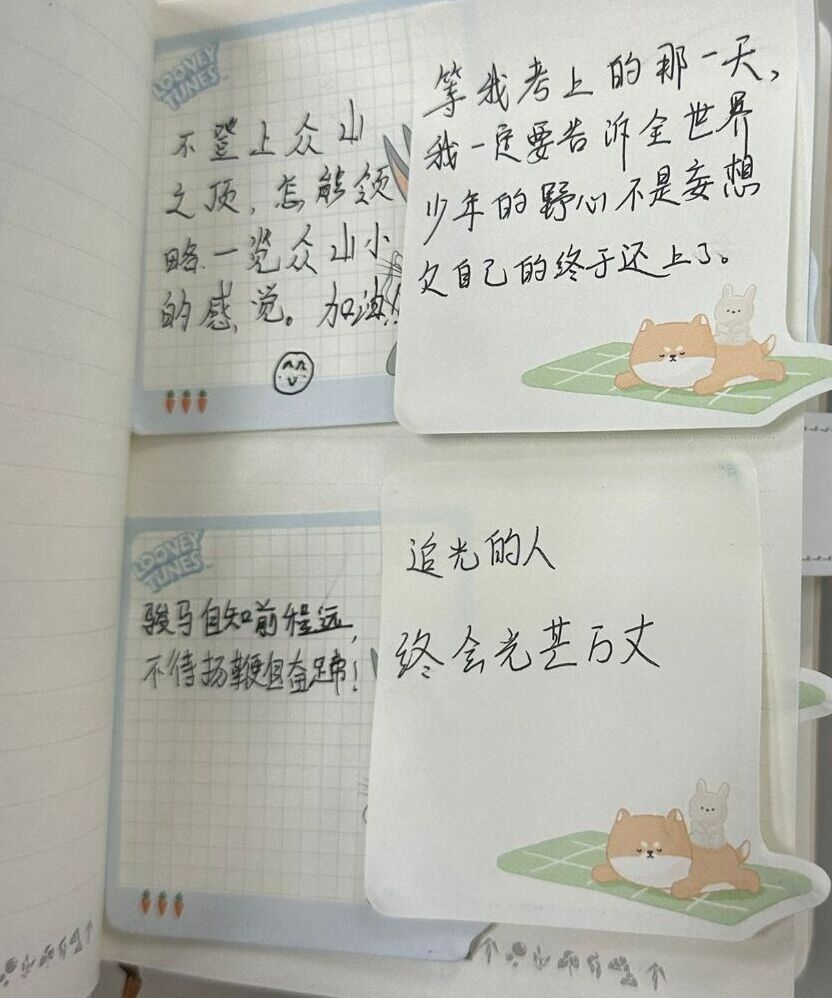 LOONEY
TUNES
不登上众山
之顶，怎能领
略一览众山小
的感觉。加油！
等我考上的那一天，
我一定要告诉全世界
少年的野心不是妄想
欠自己的终于还上了。
LOONEY
TUNES
骏马自知前程远，
不待扬鞭自奋蹄！
追光的人
终会光芒万丈